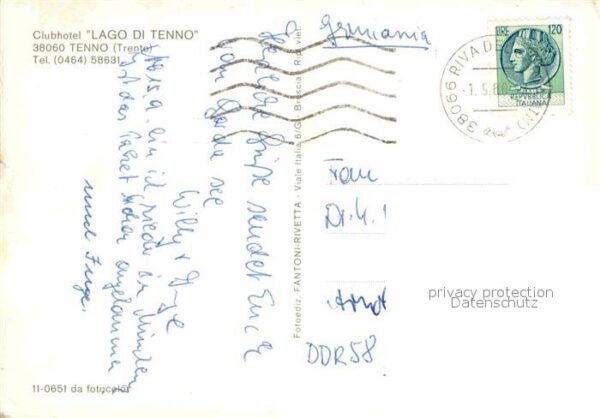 Clubhotel "LAGO DI TENNO"
38060 TENNO (Trente)
Tel. (0464) 58631
Germania
LIRE 120
REPUBBLICA
ITALIANA
38066 RIVA DE
-1.9.80
(TN)
Herzliche Grüße sendet Euch
vom Garda see
Willy + Inge
Ab 15.9. bin ich wieder in München
Ist das Paket schon angekommen
und Inge.
Fotoediz. FANTONI-RIVETTA - Viale Italia 6/G - Brescia - Rip. viet.
Frau
DDR 58
privacy protection
Datenschutz
11-0651 da fotocolor